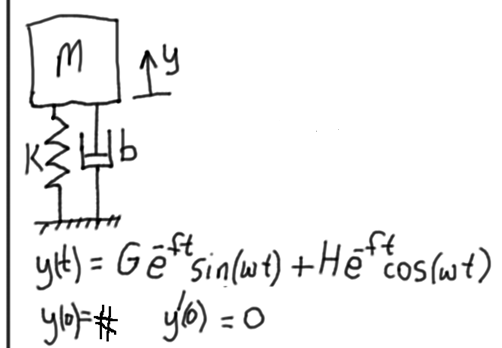 M
y
K
b
y(t) = Ge^{-ft} sin(ωt) + He^{-ft} cos(ωt)
y(0)=# y'(0) = 0